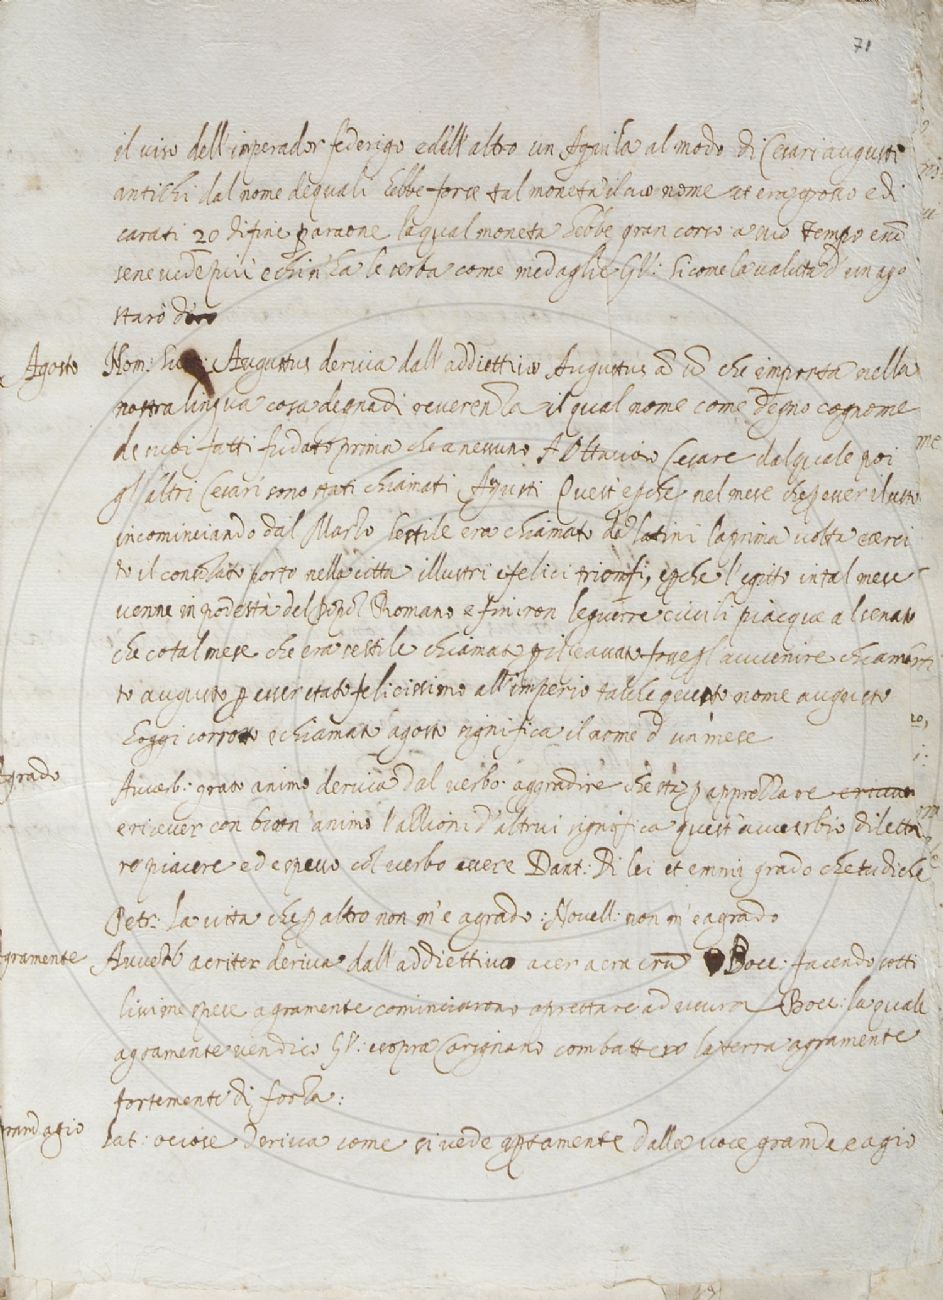 71
il viso dell'imperador federigo e dell'altro un Aquila al modo di Cesari augusti
antichi dal nome de quali hebbe forse tal moneta il suo nome et era grosso e di
carati 20 di fine paraone la qual moneta hebbe gran corso a suo tempo
sene vede più e chi n'ha le serba come medaglie GV: si come la valuta d'un ago
staro d'oro
Agosto
Nom: Augustus deriva dall'addiettivo Augustus a u che importa nella
nostra lingua cosa degna di reverenza il qual nome come degno cognome
de suoi fatti fu dato prima che a nessuno A Ottavio Cesare dal quale poi
gl'altri Cesari sono stati chiamati Agusti Quest' e che nel mese che
incominciando dal Marzo sestile era chiamato da latini la prima volta eserci
to il consolato porto nella citta illustri e felici trionfi, e che l'egitto in tal mese
venne in podestà del popol Romano e finiron le guerre civili piacque al senato
che cotal mese che era sestile chiamato per l'avvenire chiam
to augusto per esser stato felicissimo all'imperio talche questo nome augusto
hoggi corrotto e chiamato agosto significa il nome d'un mese
grado
Avverb: grato animo deriva dal verbo aggradire che sta per apprezzare
e ricever con buon animo l'attioni d'altrui significa quest'avverbio diletta
re piacere ed e spesso col verbo essere Dant: Di lei et emmi grado che tu diche
Petr: la vita che per altro non m'e a grado: Novell: non m'e a grado
gramente
Avverb acriter deriva dall'addiettivo acer acra cru Bocc: facendo sotti
lissime spese agramente cominciarono a prestare ad usura Bocc: la quale
agramente vendico GV: e sopra Carignano combattero la terra agramente
fortemente di forza:
randagio
Lat: ociose deriva come si vede apertamente dalla voce grande e agio